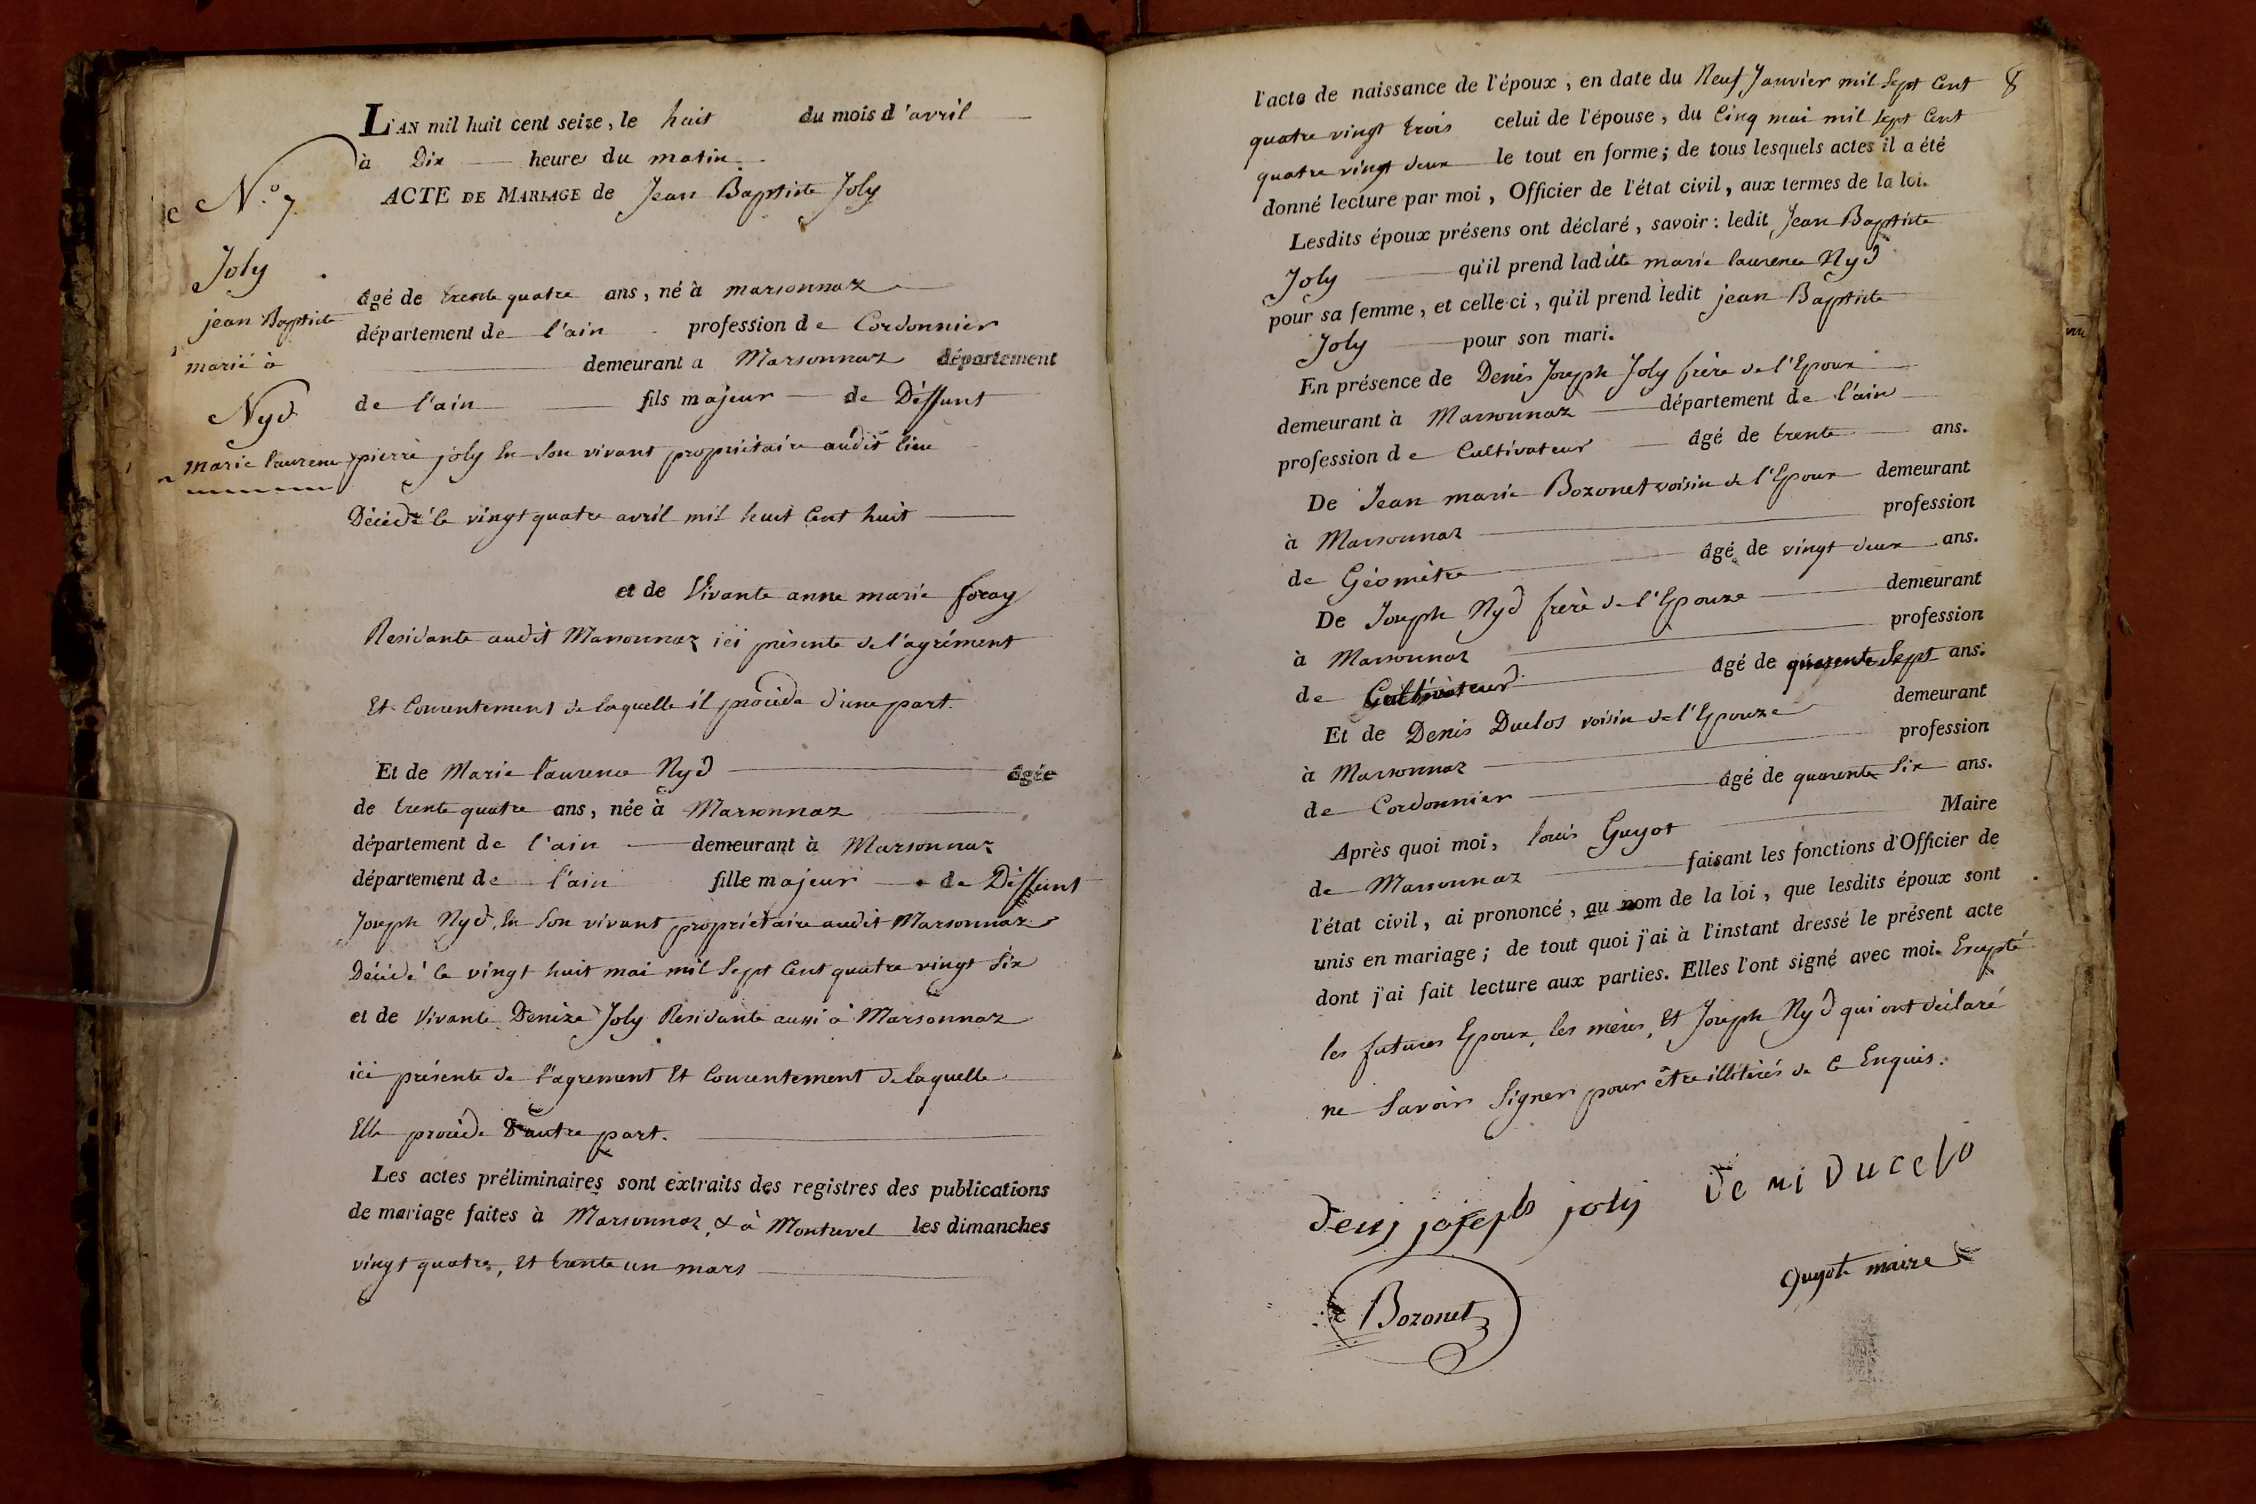 L'AN mil huit cent seize, le huit du mois d'avril
à Dix heures du matin.
ACTE DE MARIAGE de Jean Baptiste Joly
N.° 7
Joly
jean Baptiste
marié à
Nyd
marie laurence
âgé de trente quatre ans, né à marsonnaz
département de l'ain profession de Cordonnier
demeurant a Marsonnaz département
de l'ain fils majeur de Déffunt
pierre joly En Son vivant propriétaire audit lieu
Décédé le vingt quatre avril mil huit Cent huit
et de Vivante anne marie foray
Residante audit Marsonnaz ici présente de l'agrément
Et Consentement de laquelle il procéde d'une part.
Et de Marie laurence Nyd âgée
de trente quatre ans, née à Marsonnaz
département de l'ain demeurant à Marsonnaz
département de l'ain fille majeur de Déffunt
Joseph Nyd, En Son vivant propriétaire audit Marsonnaz
Décédé le vingt huit mai mil Sept Cent quatre vingt Six
et de Vivante Denize Joly Residante aussi à Marsonnaz
ici présente de l'agrement Et Consentement de laquelle
Elle procéde d'autre part.
Les actes préliminaires sont extraits des registres des publications
de mariage faites à Marsonnaz, & à Montrevel les dimanches
vingt quatre, Et trente un mars
8
l'acte de naissance de l'époux, en date du Neuf Janvier mil Sept Cent
quatre vingt trois celui de l'épouse, du Cinq mai mil Sept Cent
quatre vingt deux le tout en forme; de tous lesquels actes il a été
donné lecture par moi, Officier de l'état civil, aux termes de la loi.
Lesdits époux présens ont déclaré, savoir: ledit Jean Baptiste
Joly qu'il prend ladite marie laurence Nyd
pour sa femme, et celle-ci, qu'il prend ledit jean Baptiste
Joly pour son mari.
En présence de Denis Joseph Joly frère de l'Epoux
demeurant à Marsonnaz département de l'ain
profession de Cultivateur âgé de trente ans.
De Jean marie Bozonet voisin de l'Epoux demeurant
à Marsonnaz profession
de Géomètre âgé de vingt deux ans.
De Joseph Nyd frère de l'Epouze demeurant
à Marsonnaz profession
de Cultivateur âgé de quarente Sept ans.
Et de Denis Duclos voisin de l'Epouze demeurant
à Marsonnaz profession
de Cordonnier âgé de quarente Six ans.
Après quoi moi, louis Guyot Maire
de Marsonnaz faisant les fonctions d'Officier de
l'état civil, ai prononcé, au nom de la loi, que lesdits époux sont
unis en mariage; de tout quoi j'ai à l'instant dressé le présent acte
dont j'ai fait lecture aux parties. Elles l'ont signé avec moi. Excepté
les futures Epoux, les mères, Et Joseph Nyd qui ont déclaré
ne Savoir Signer pour être illitérés de ce Enquis.
denij josephs joly de ni ducelo
Guyot maire
Bozonet